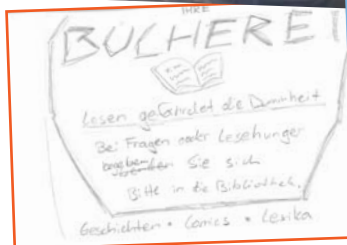 IHRE
BÜCHEREI
Lesen gefährdet die Dummheit
Bei Fragen oder Lesehunger
Sie sich
Bitte in die Bibliothek.
Geschichten • Comics • Lexika